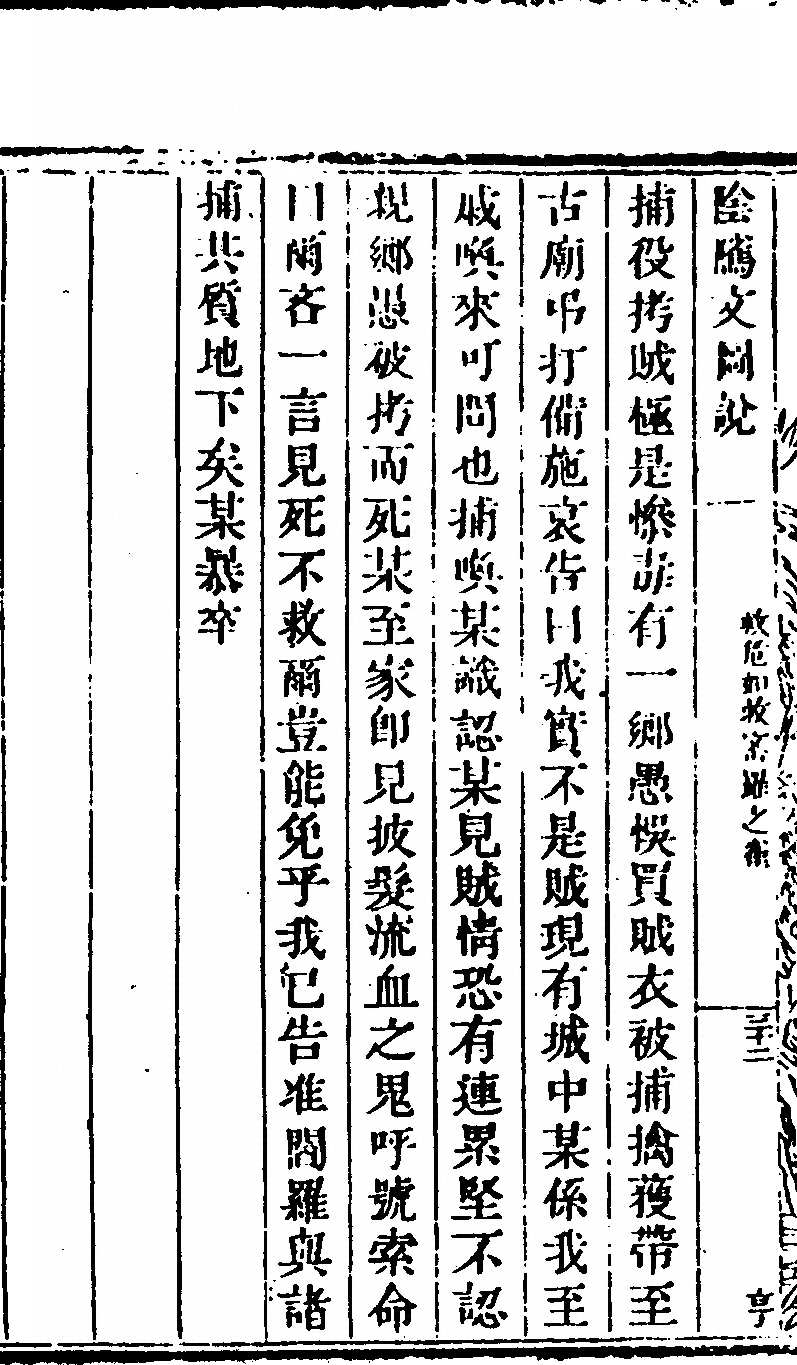 陰隲文圖說
救危如救密羅之雀
三十二
亨
捕役拷賊極是慘毒有一鄉愚悞買賊衣被捕擒獲帶至
古廟吊打備施哀告曰我實不是賊現有城中某係我至
戚喚來可問也捕喚某識認某見賊情恐有連累堅不認
親鄉愚被拷而死某至家卽見披髮流血之鬼呼號索命
曰爾吝一言見死不救爾豈能免乎我已告准閻羅與諸
捕共質地下矣某暴卒